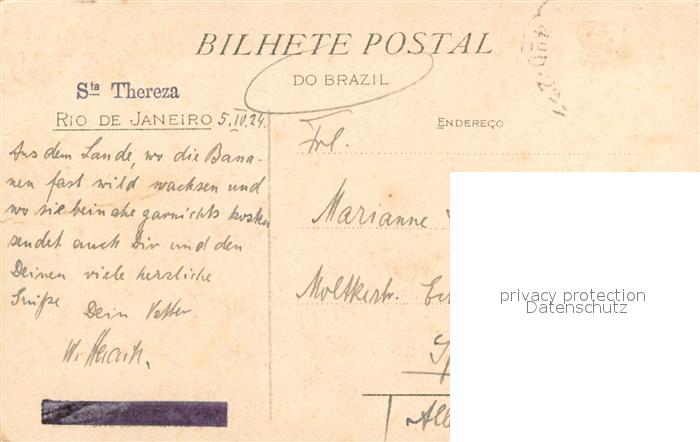 BILHETE POSTAL
DO BRAZIL
Sta Thereza
RIO DE JANEIRO 5.IV.24.
Aus dem Lande, wo die Bana-
nen fast wild wachsen und
wo sie beinahe garnichts kosten
sendet auch Dir und den
Deinen viele herzliche
Grüße
Dein Vetter
W.
ENDEREÇO
Frl.
Marianne
Moltkestr.
privacy protection
Datenschutz